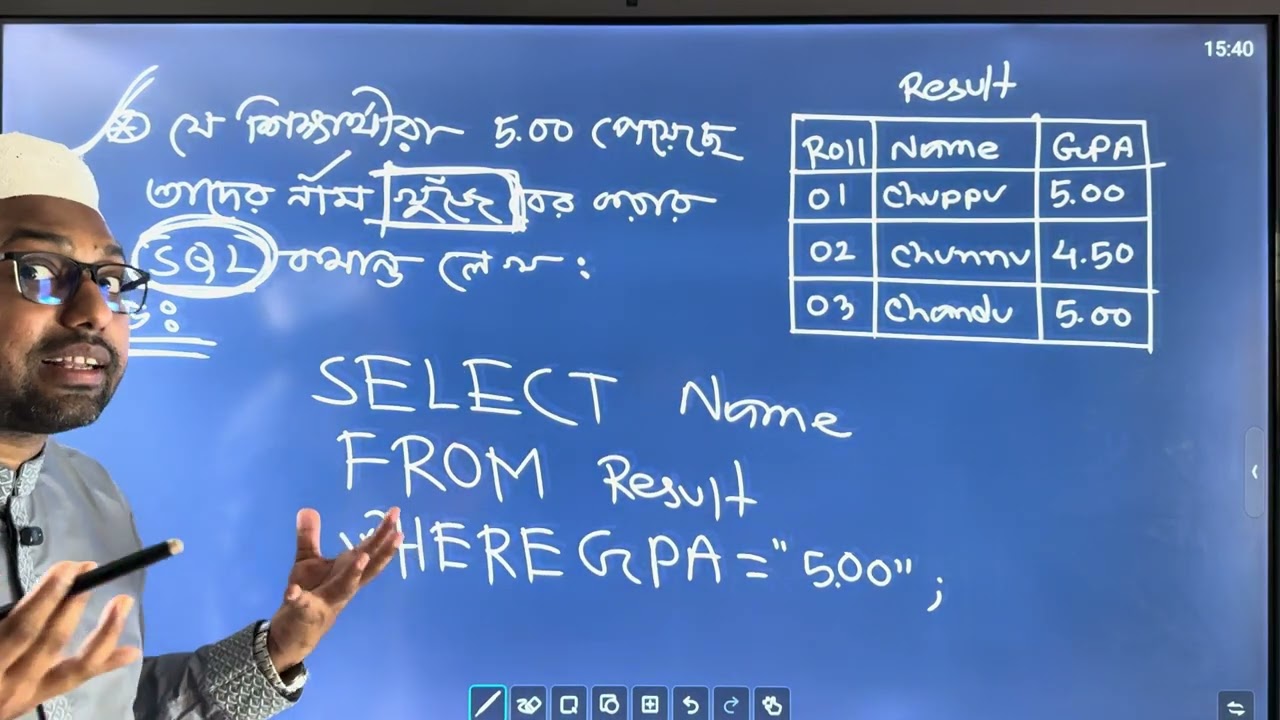 15:40
যে শিক্ষার্থীরা 5.00 পেয়েছে
তাদের নাম খুঁজে বের করার
SQL কমান্ড লেখ :
Result
Roll Name GPA
01 Chuppu 5.00
02 Chunnu 4.50
03 Chandu 5.00
SELECT Name
FROM Result
WHERE GPA = "5.00" ;